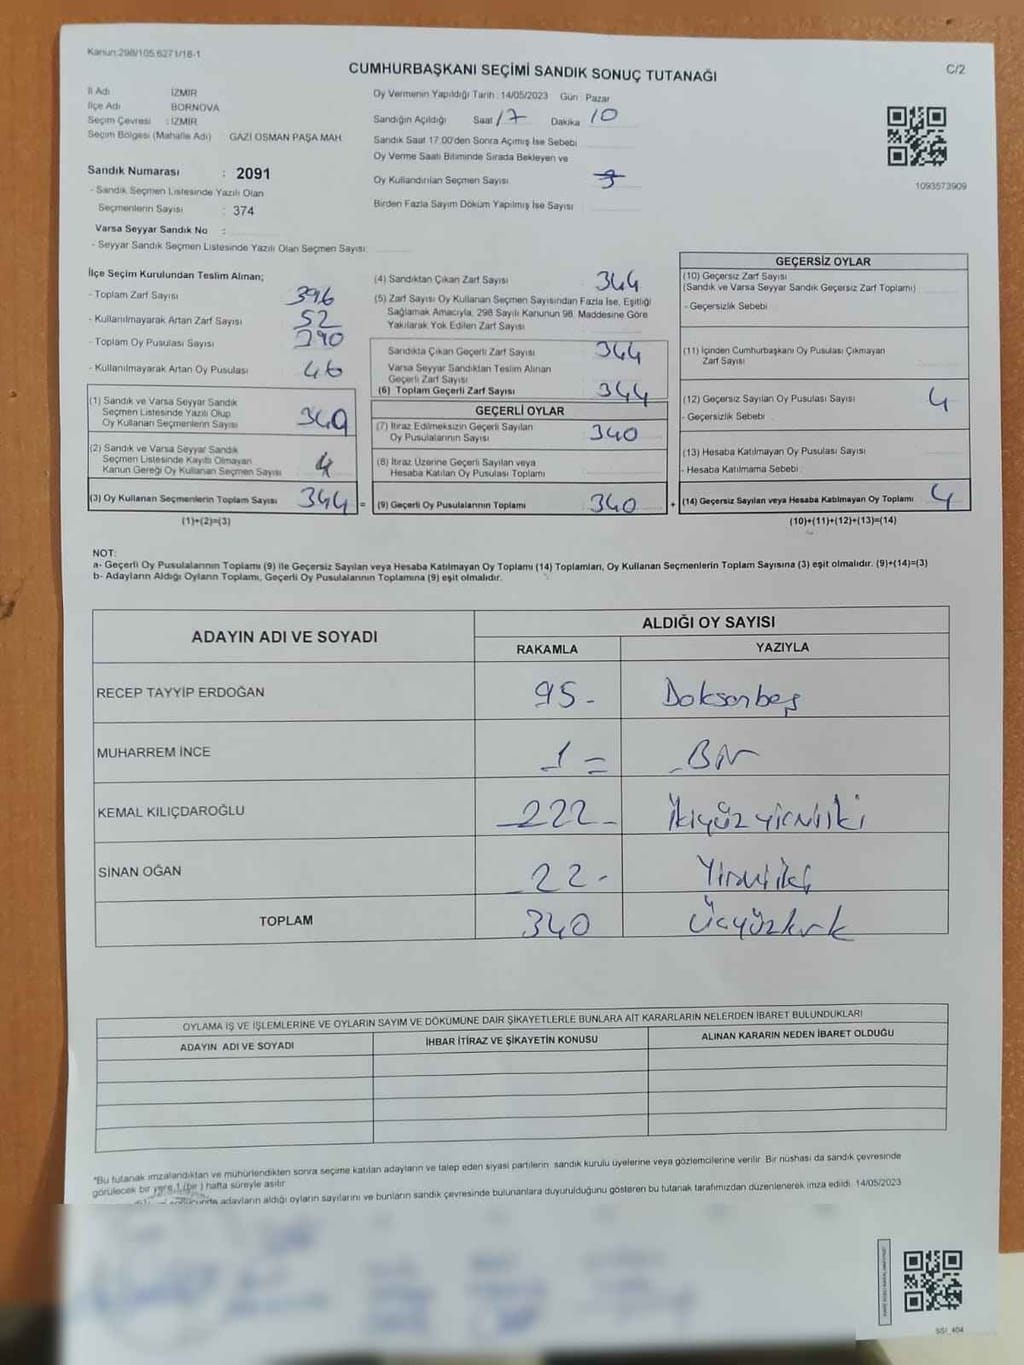 Kanun:298/105.6271/18-1
CUMHURBAŞKANI SEÇİMİ SANDIK SONUÇ TUTANAĞI
C/2
İl Adı İZMİR
İlçe Adı BORNOVA
Seçim Çevresi : İZMİR
Seçim Bölgesi (Mahalle Adı) GAZİ OSMAN PAŞA MAH
Sandık Numarası : 2091
- Sandık Seçmen Listesinde Yazılı Olan
Seçmenlerin Sayısı : 374
Varsa Seyyar Sandık No :
- Seyyar Sandık Seçmen Listesinde Yazılı Olan Seçmen Sayısı:
Oy Vermenin Yapıldığı Tarih : 14/05/2023 Gün : Pazar
Sandığın Açıldığı Saat 17 Dakika 10
Sandık Saat 17.00'den Sonra Açımış İse Sebebi
Oy Verme Saati Bitiminde Sırada Bekleyen ve
Oy Kullandırılan Seçmen Sayısı
Birden Fazla Sayım Döküm Yapılmış İse Sayısı
1093573909
İlçe Seçim Kurulundan Teslim Alınan;
- Toplam Zarf Sayısı 396
- Kullanılmayarak Artan Zarf Sayısı 52
- Toplam Oy Pusulası Sayısı 390
- Kullanılmayarak Artan Oy Pusulası 46
(1) Sandık ve Varsa Seyyar Sandık
Seçmen Listesinde Yazılı Olup
Oy Kullanan Seçmenlerin Sayısı 340
(2) Sandık ve Varsa Seyyar Sandık
Seçmen Listesinde Kayıtlı Olmayan
Kanun Gereği Oy Kullanan Seçmen Sayısı 4
(3) Oy Kullanan Seçmenlerin Toplam Sayısı 344 =
(1)+(2)=(3)
(4) Sandıktan Çıkan Zarf Sayısı 344
(5) Zarf Sayısı Oy Kullanan Seçmen Sayısından Fazla İse, Eşitliği
Sağlamak Amacıyla, 298 Sayılı Kanunun 98. Maddesine Göre
Yakılarak Yok Edilen Zarf Sayısı
Sandıkta Çıkan Geçerli Zarf Sayısı 344
Varsa Seyyar Sandıktan Teslim Alınan
Geçerli Zarf Sayısı
(6) Toplam Geçerli Zarf Sayısı 344
GEÇERLİ OYLAR
(7) İtiraz Edilmeksizin Geçerli Sayılan
Oy Pusulalarının Sayısı 340
(8) İtiraz Üzerine Geçerli Sayılan veya
Hesaba Katılan Oy Pusulası Toplamı
(9) Geçerli Oy Pusulalarının Toplamı 340 +
GEÇERSİZ OYLAR
(10) Geçersiz Zarf Sayısı
(Sandık ve Varsa Seyyar Sandık Geçersiz Zarf Toplamı)
- Geçersizlik Sebebi
(11) İçinden Cumhurbaşkanı Oy Pusulası Çıkmayan
Zarf Sayısı
(12) Geçersiz Sayılan Oy Pusulası Sayısı 4
- Geçersizlik Sebebi
(13) Hesaba Katılmayan Oy Pusulası Sayısı
- Hesaba Katılmama Sebebi
(14) Geçersiz Sayılan veya Hesaba Katılmayan Oy Toplamı 4
(10)+(11)+(12)+(13)=(14)
NOT:
a- Geçerli Oy Pusulalarının Toplamı (9) ile Geçersiz Sayılan veya Hesaba Katılmayan Oy Toplamı (14) Toplamları, Oy Kullanan Seçmenlerin Toplam Sayısına (3) eşit olmalıdır. (9)+(14)=(3)
b- Adayların Aldığı Oyların Toplamı, Geçerli Oy Pusulalarının Toplamına (9) eşit olmalıdır.
ADAYIN ADI VE SOYADI
ALDIĞI OY SAYISI
RAKAMLA YAZIYLA
RECEP TAYYİP ERDOĞAN 95 - Doksanbeş
MUHARREM İNCE 1 = Bir
KEMAL KILIÇDAROĞLU 222 - İkiyüz yirmiiki
SİNAN OĞAN 22 - Yirmiiki
TOPLAM 340 Üçyüzkırk
OYLAMA İŞ VE İŞLEMLERİNE VE OYLARIN SAYIM VE DÖKÜMÜNE DAİR ŞİKAYETLERLE BUNLARA AİT KARARLARIN NELERDEN İBARET BULUNDUKLARI
ADAYIN ADI VE SOYADI İHBAR İTİRAZ VE ŞİKAYETİN KONUSU ALINAN KARARIN NEDEN İBARET OLDUĞU
*Bu tutanak imzalandıktan ve mühürlendikten sonra seçime katılan adayların ve talep eden siyasi partilerin sandık kurulu üyelerine veya gözlemcilerine verilir. Bir nüshası da sandık çevresinde
görülecek bir yere 1 (bir) hafta süreyle asılır.
adayların aldığı oyların sayılarını ve bunların sandık çevresinde bulunanlara duyurulduğunu gösteren bu tutanak tarafımızdan düzenlenerek imza edildi. 14/05/2023
SSI_404